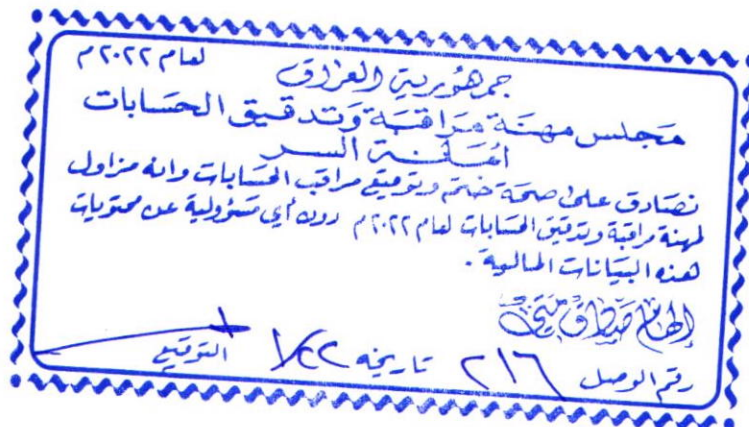 لعام ٢٠٢٢ م
جمهورية العراق
مجلس مهنة مراقبة وتدقيق الحسابات
أمانة السر
نصادق على صحة ختم وتوقيع مراقب الحسابات وانه مزاول
لمهنة مراقبة وتدقيق الحسابات لعام ٢٠٢٢ م دون أي مسؤولية عن محتويات
هذه البيانات المالية .
الهام صادق
رقم الوصل ٢١٦ تاريخه ١/٢٢ التوقيع